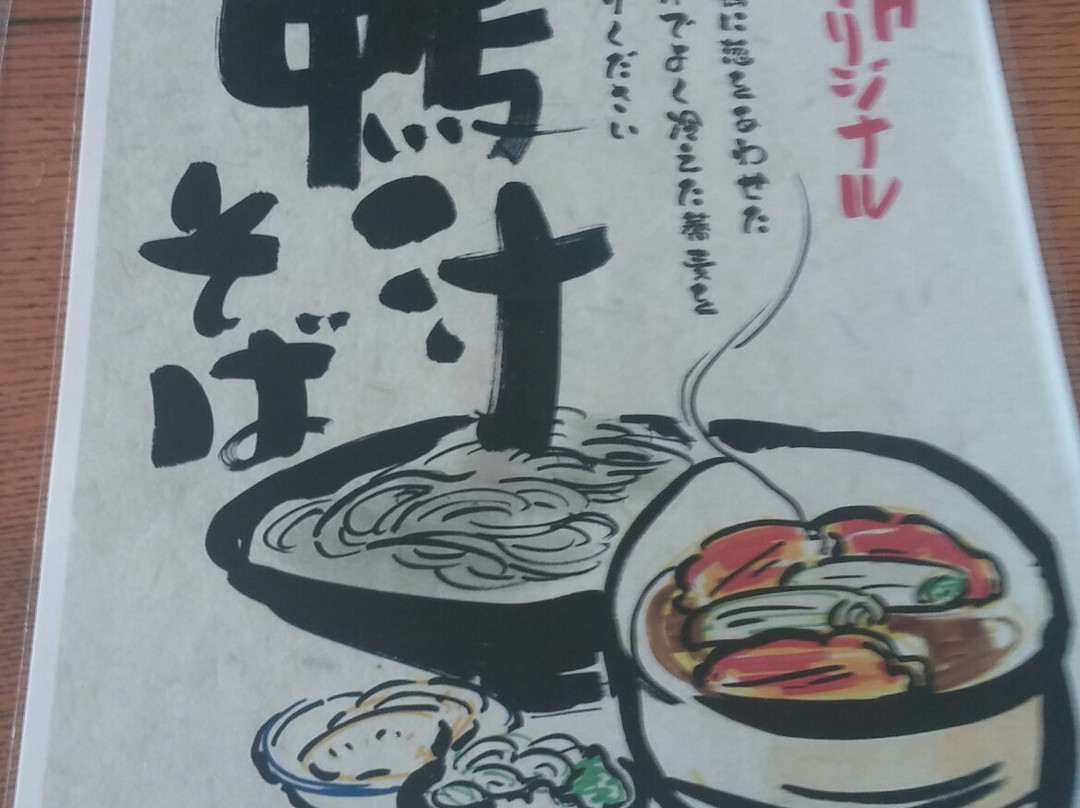 リジナル
に葱をあわせた
でよく冷えた蕎麦を
ください
鴨汁
そば